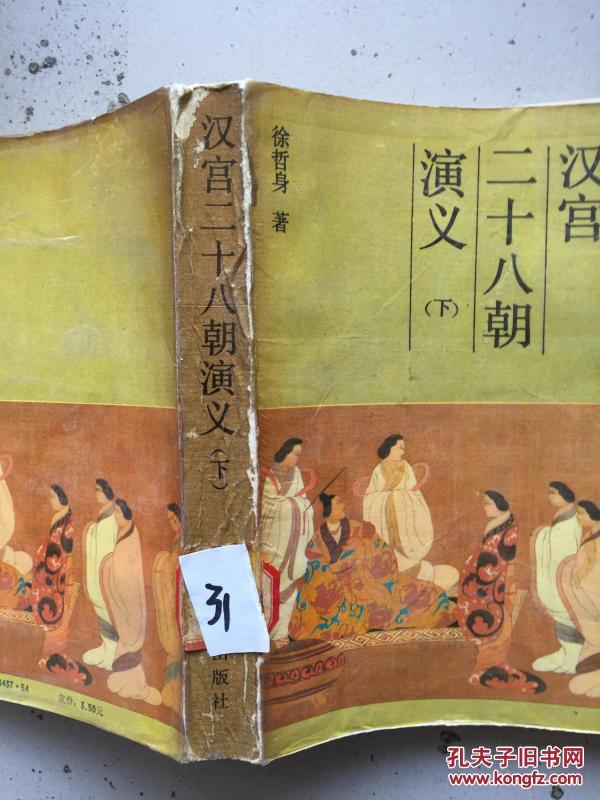 汉宫
二十八朝
演义
（下）
徐哲身 著
汉宫二十八朝演义（下）
31
出版社
437·54
定价：3.50元
孔夫子旧书网
www.kongfz.com